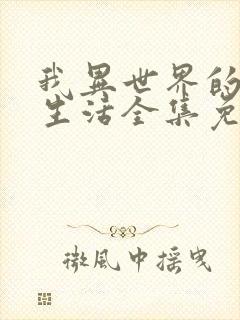 我異世界的
生活全集免
微風中搖曳